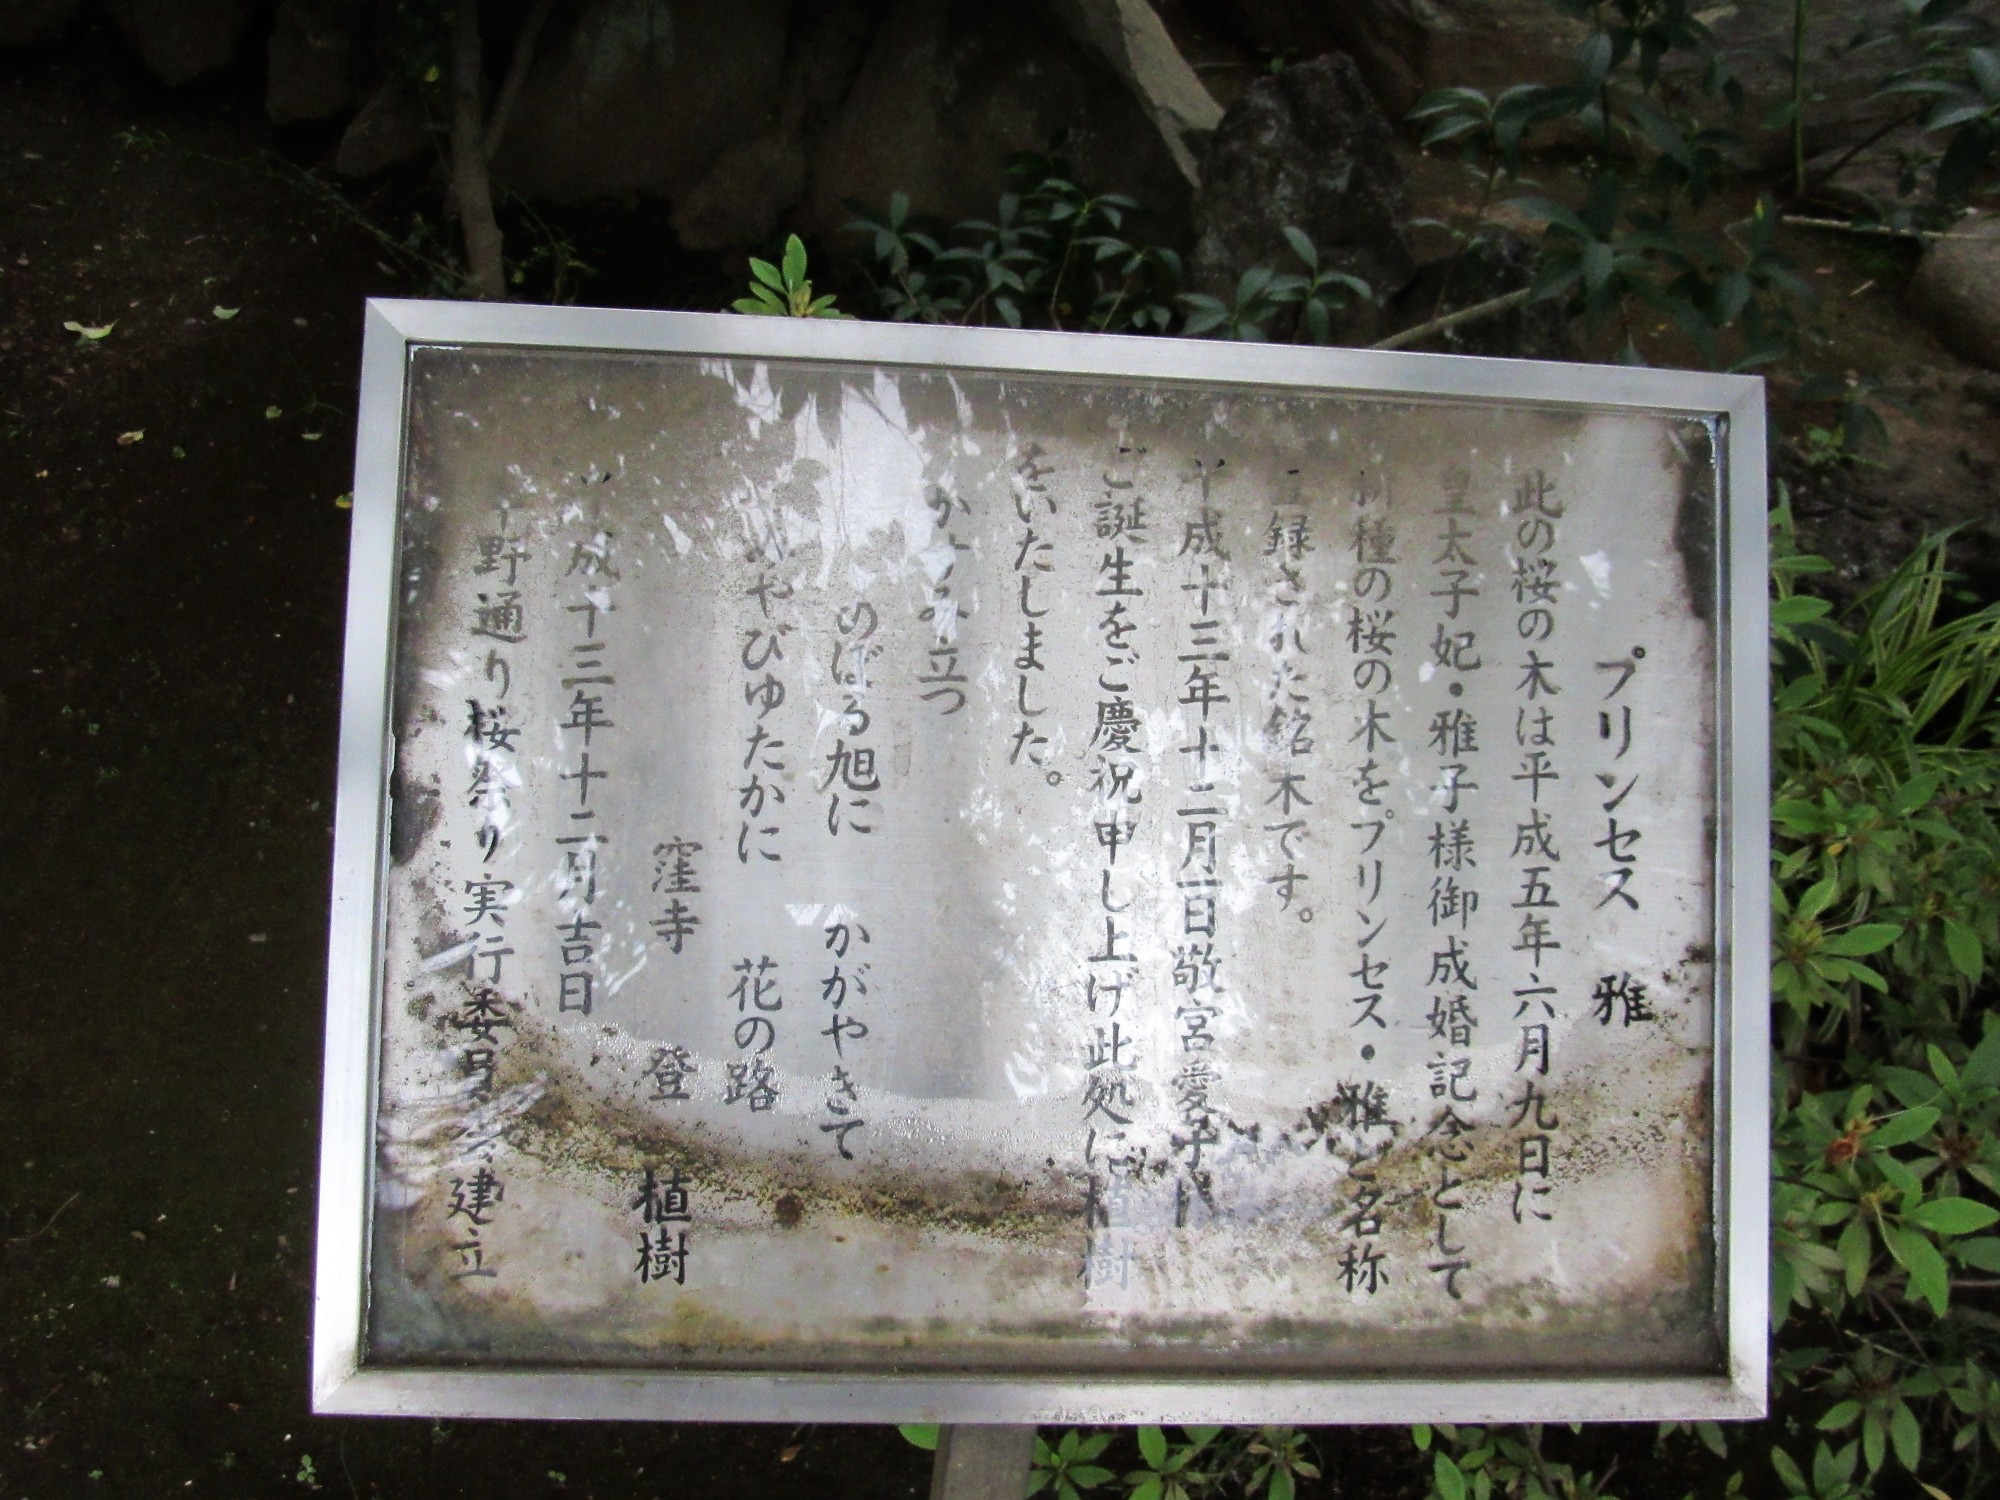 プリンセス 雅
此の桜の木は平成五年六月九日に
皇太子妃・雅子様御成婚記念として
新種の桜の木をプリンセス・雅と名称
登録された銘木です。
平成十三年十二月一日敬宮愛子様
ご誕生をご慶祝申し上げ此処に植樹
をいたしました。
立つ
のぼる旭に かがやきて
みやびゆたかに 花の路
窪寺 登 植樹
平成十三年十二月吉日
野通り桜祭り実行委員会建立